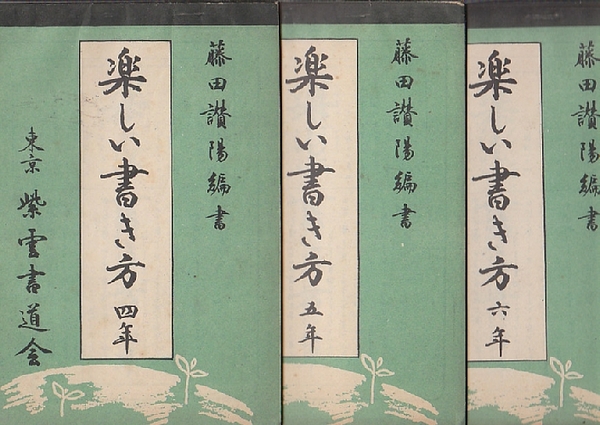 藤田讃陽編書
楽しい書き方 四年
東京 紫雲書道会
藤田讃陽編書
楽しい書き方 五年
藤田讃陽編書
楽しい書き方 六年